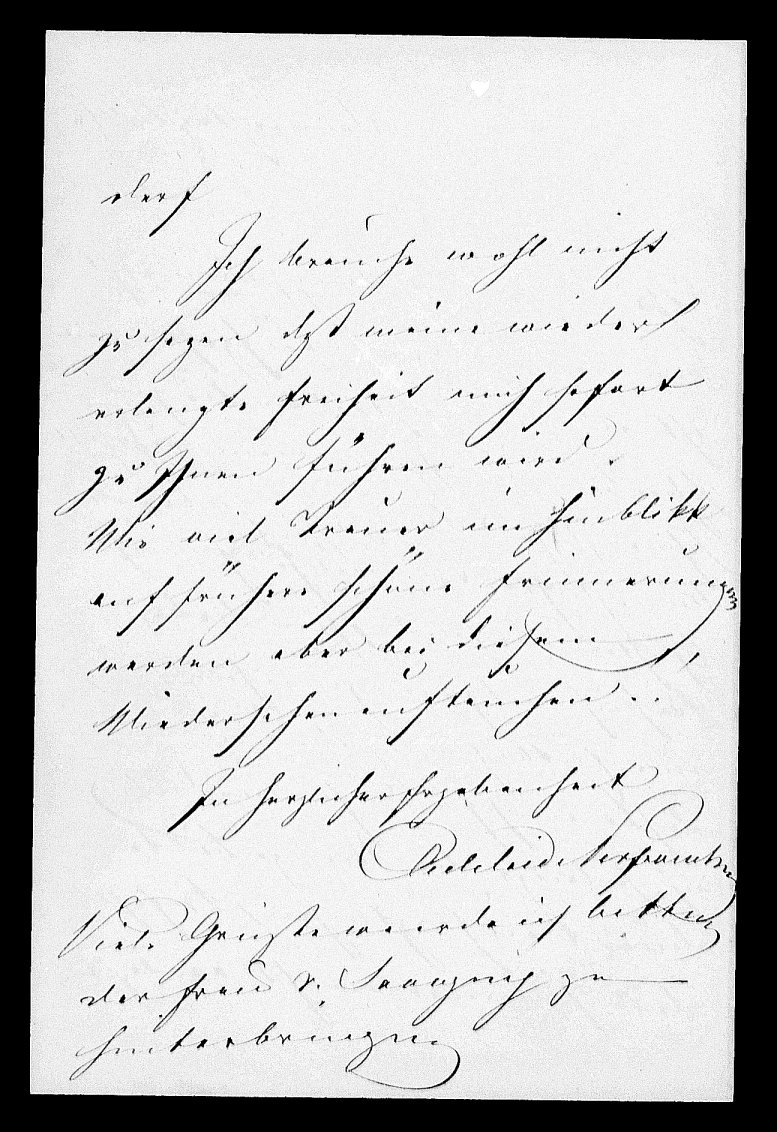 darf
Ich brauche wohl nicht
zu sagen daß meine wieder
erlangte Freiheit mich sofort
zu Ihnen führen wird.
Wie viel Trauer im Hinblikk
auf frühere schöne Erinnerungen
werden aber bei diesem
Wiedersehen auftauchen..
In herzlicher Ergebenheit
Adelaide
Viele Grüße werde ich bitten
der Frau v.
zu
hinterbringen